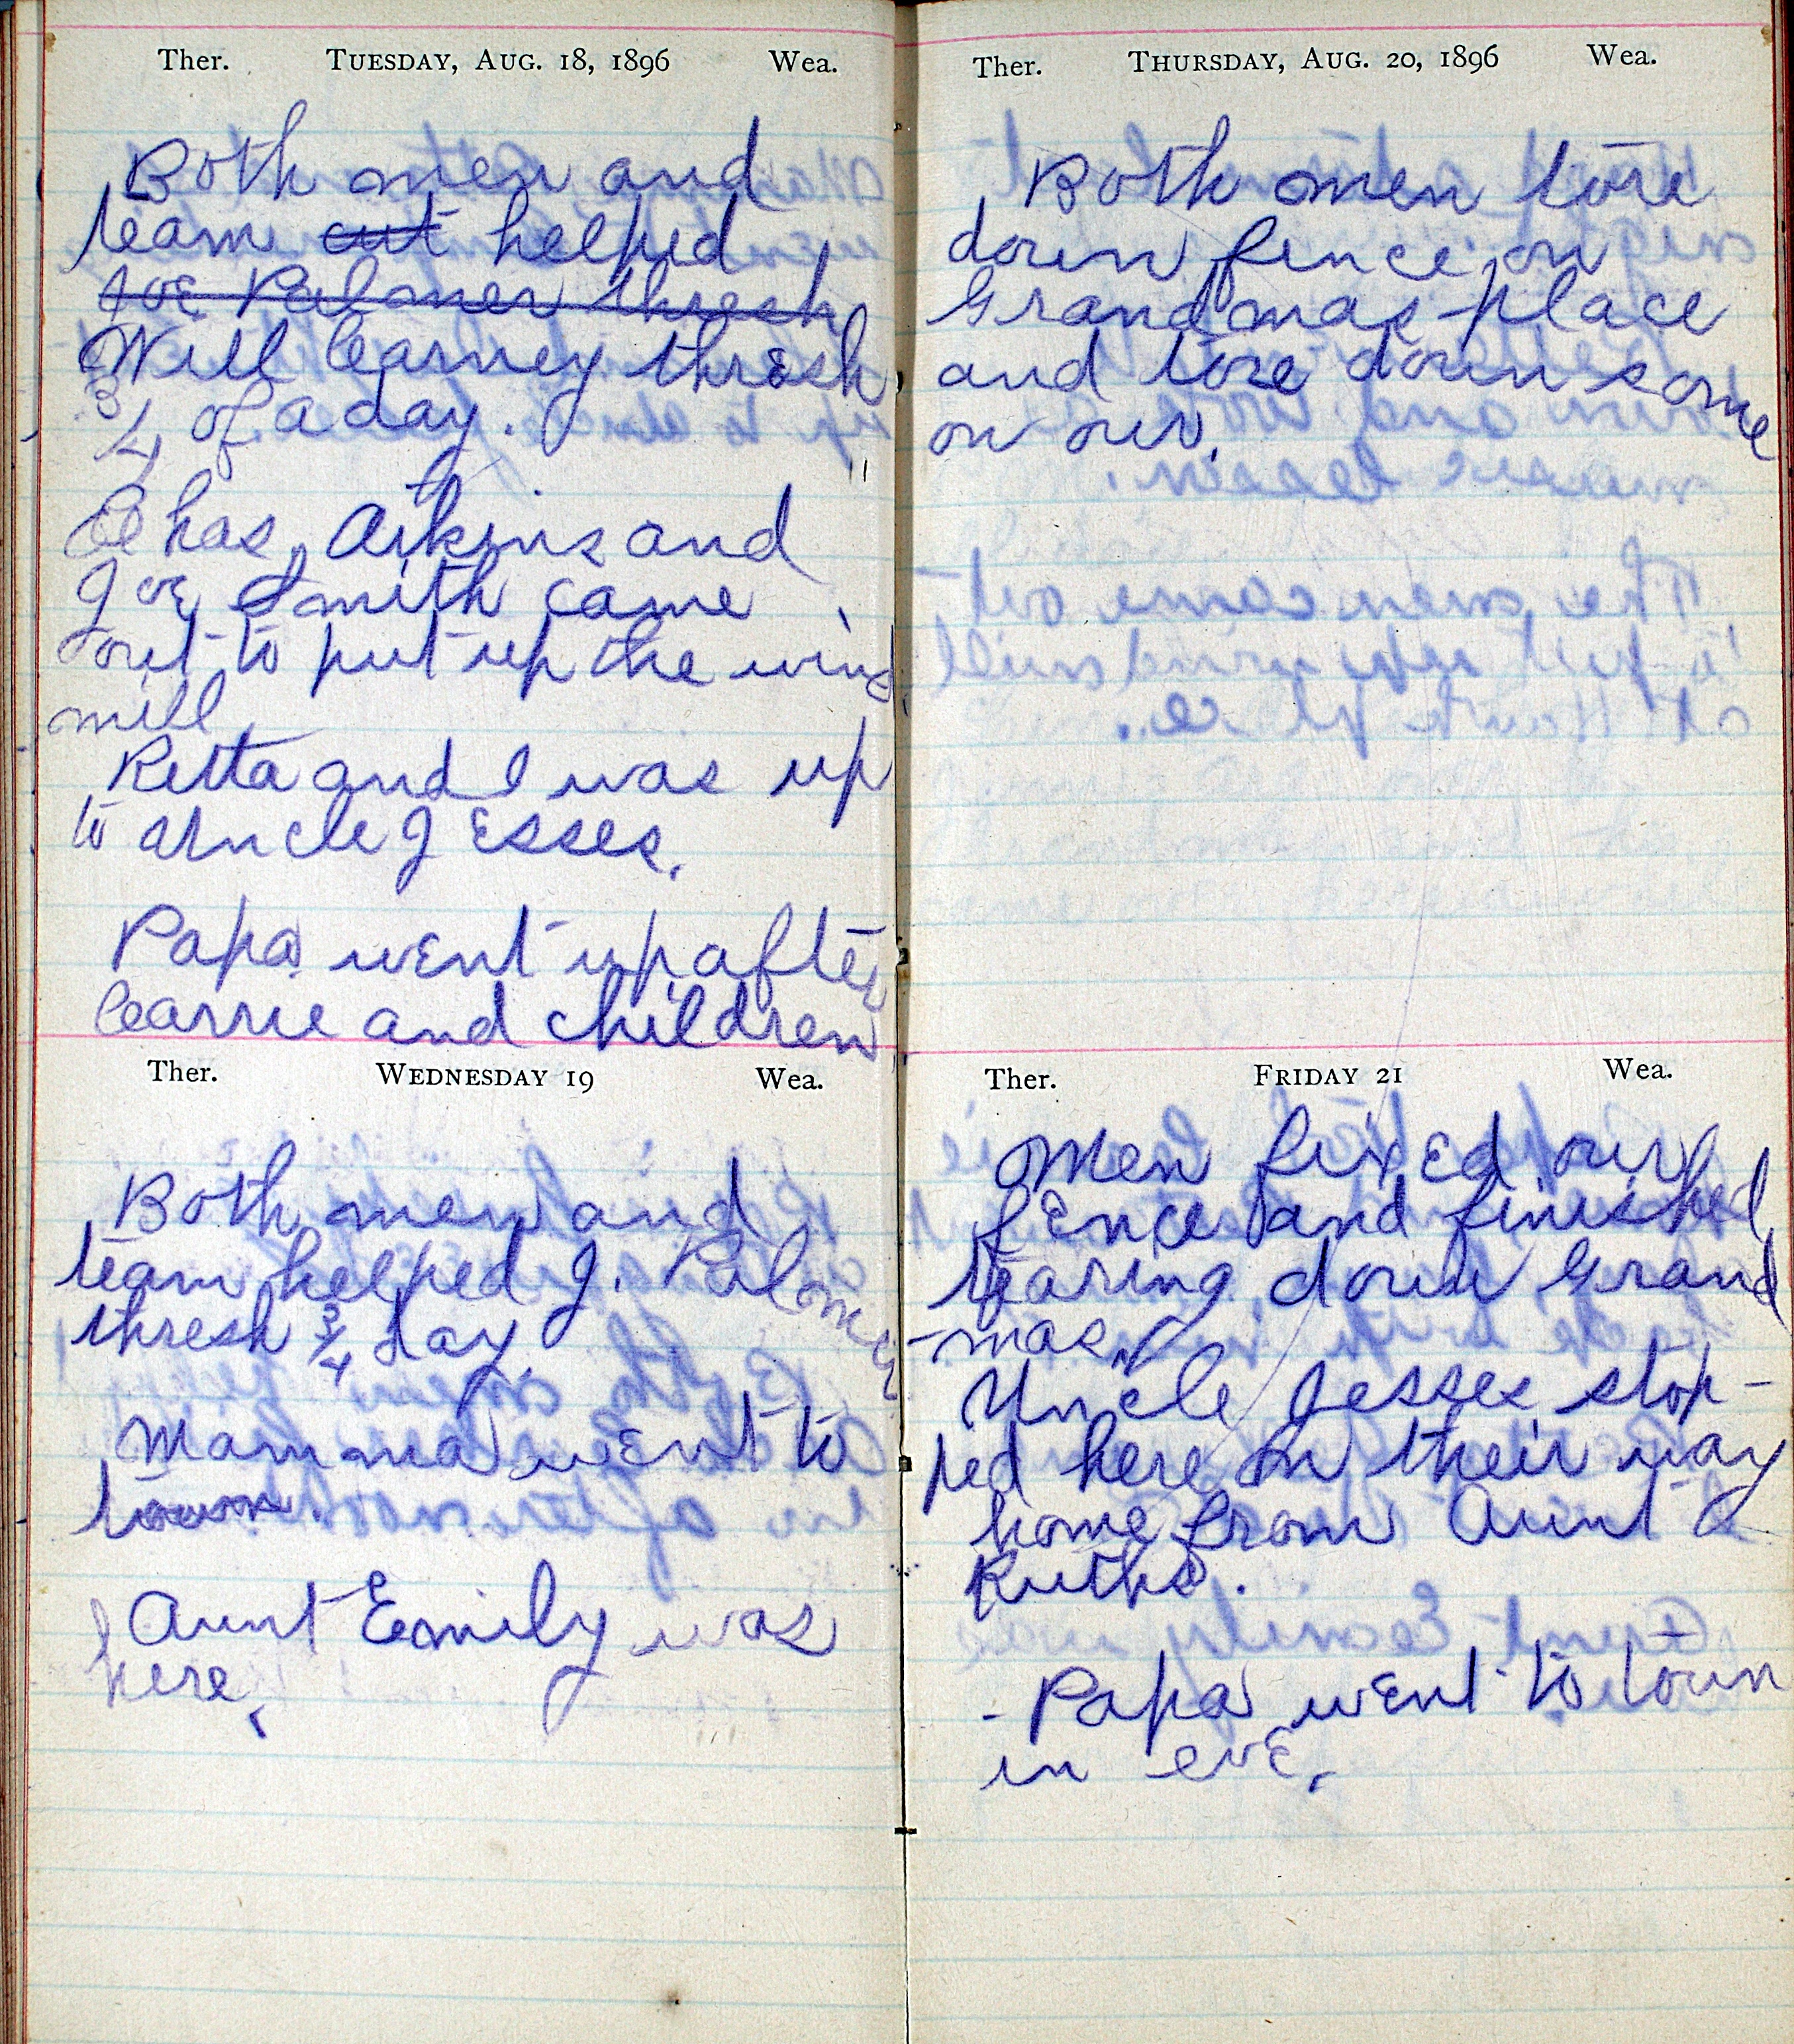 Ther. TUESDAY, AUG. 18, 1896 Wea.
Both men and
team cut helped
Joe Palmer thresh
Will Carney thresh
3/4 of a day.
Chas. Atkins and
Joe Smith came
out to put up the wind
mill
Retta and I was up
to Uncle Jesses.
Papa went up after
Carrie and children
Ther. WEDNESDAY 19 Wea.
Both men and
team helped J. Palmer
thresh 3/4 day.
Mamma went to
town.
Aunt Emily was
here.
Ther. THURSDAY, AUG. 20, 1896 Wea.
Both men tore
down fence on
Grandmas place
and tore down some
on our.
Ther. FRIDAY 21 Wea.
Men fixed our
fence and finished
tearing down Grand
-mas.
Uncle Jesses stop-
ped here on their way
home from Aunt
Ruths.
- Papa went to town
in eve.